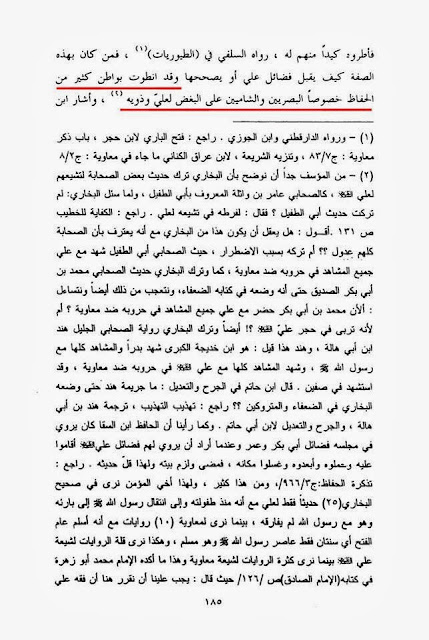 فأطرود كيداً منهم له ، رواه السلفي في (الطيوريات)(١) ، فمن كان بهذه
الصفة كيف يقبل فضائل علي أو يصححها وقد انطوت بواطن كثير من
الحفاظ خصوصاً البصريين والشاميين على البغض لعليّ وذويه (٢) ، وأشار ابن
(١) – ورواه الدارقطني وابن الجوزي . راجع : فتح الباري لابن حجر ، باب ذكر
معاوية : ج٨٣/٧ ، وتنزيه الشريعة ، لابن عراق الكناني ما جاء في معاوية : ج٨/٢
(٢) – من المؤسف جداً أن نوضح بأن البخاري ترك حديث بعض الصحابة لتشيعهم
لعلي ، كالصحابي عامر بن واثلة المعروف بأبي الطفيل ، ولما سئل البخاري: لم
تركت حديث أبي الطفيل ؟ فقال : لفرطه في تشيعه لعلي . راجع : الكفاية للخطيب
ص ١٣١ . أقــول : هل يعقل أن يكون هذا من البخاري مع أنه يعترف بأن الصحابة
كلهم عدول ؟؟ أم تركه بسبب الاضطرار ، حيث الصحابي أبي الطفيل شهد مع علي
جميع المشاهد في حروبه ضد معاوية ، كما وترك البخاري حديث الصحابي محمد بن
أبي بكر الصديق حتى أنه وضعه في كتابه الضعفاء، ونتعجب من ذلك أيضاً ونتساءل
: ألأن محمد بن أبي بكر حضر مع علي جميع المشاهد في حروبه ضد معاوية ؟ أم
لأنه تربى في حجر علي ؟! أيضاً وترك البخاري رواية الصحابي الجليل هند
ابن أبي هالة ، وهند هذا قيل : هو ابن خديجة الكبرى شهد بدراً والمشاهد كلها مع
رسول الله ﷺ ، وشهد المشاهد كلها مع علي في حروبه ضد معاوية ، وقد
استشهد في صفين . قال ابن حاتم في الجرح والتعديل : ما جريمة هند حتى وضعه
البخاري في الضعفاء والمتروكين ؟؟ راجع : تهذيب التهذيب ، ترجمة هند بن أبي
هالة ، والجرح والتعديل لابن أبي حاتم . وكما رأينا أن الحافظ ابن السقا كان يروي
في مجلسه فضائل أبي بكر وعمر وعندما أراد أن يروي لهم فضائل علي أقاموا
عليه وأبعدوه وغسلوا مكانه ، فمضى ولزم بيته ولهذا قلّ حديثه . راجع :
تذكرة الحفاظ:ج٩٦٦/٣، ومن هذا كثير ، ولهذا أخي المؤمن نرى في صحيح
البخاري(٢٥) حديثاً فقط لعلي مع أنه منذ طفولته وإلى انتقال رسول الله ﷺ إلى بارئه
وهو مع رسول الله لم يفارقه ، بينما نرى لمعاوية (١٠) روايات مع أنه أسلم عام
الفتح أي سنتان فقط عاصر رسول الله ﷺ وهو مسلم ، وهكذا نرى قلة الروايات لشيعة
علي بينما نرى كثرة الروايات لشيعة معاوية وهذا ما أكده الإمام محمد أبو زهرة
في كتابه(الإمام الصادق)ص /١٢٦/ حيث قال : يجب علينا أن نقرر هنا أن فقه علي
١٨٥